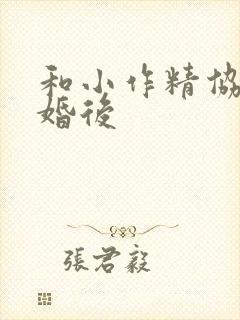 和小作精協
婚後
張君毅